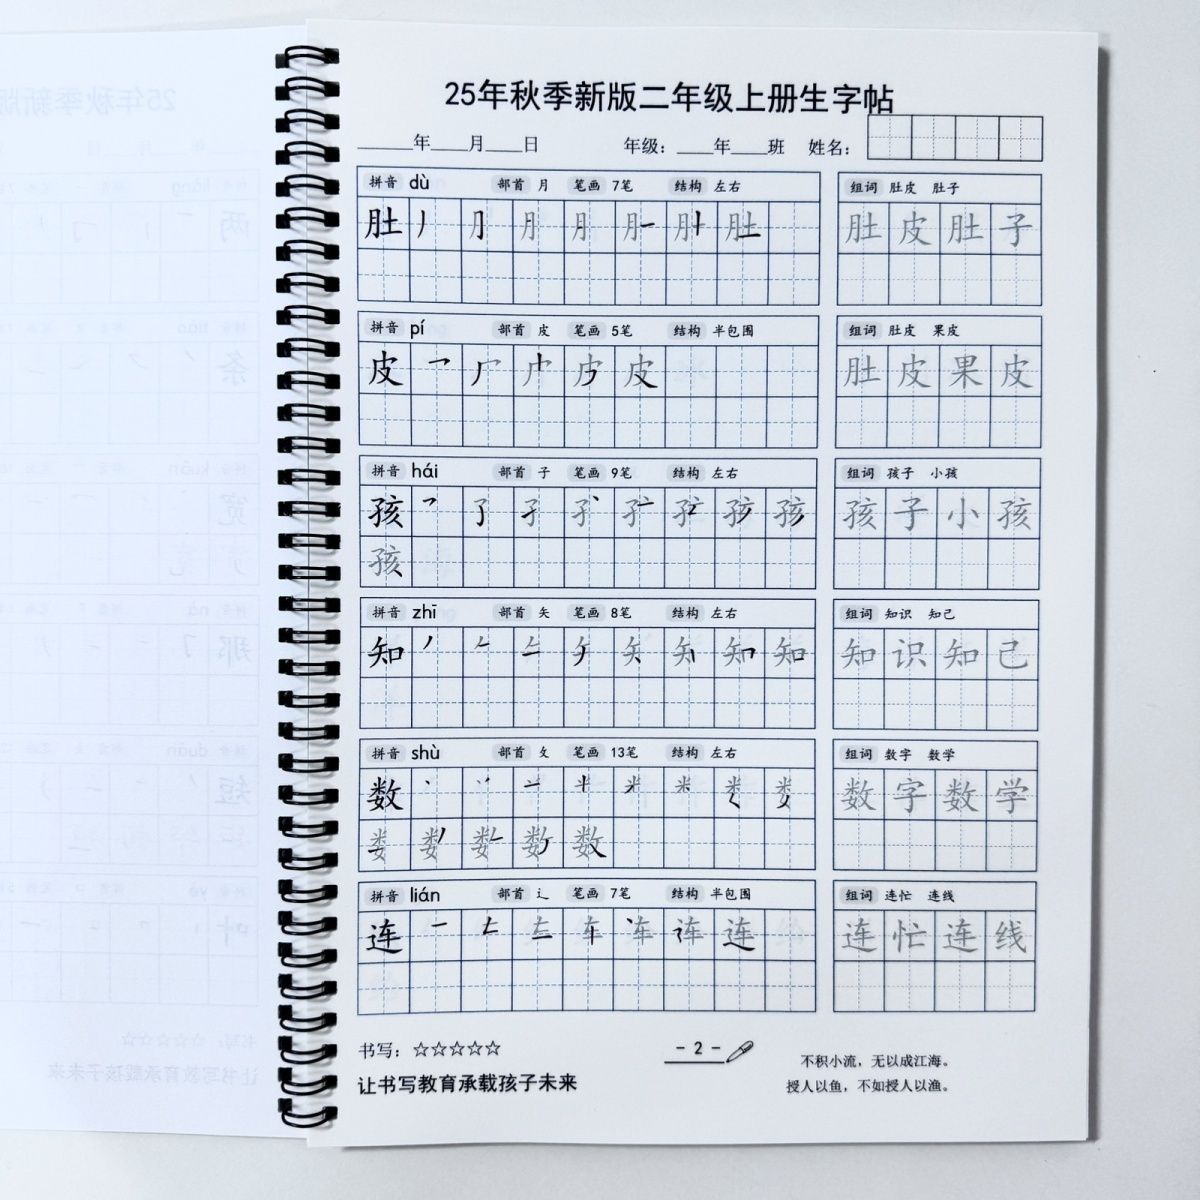 25年秋季新版二年级上册生字帖
______年____月____日 年级：____年____班 姓名：
拼音 dù 部首 月 笔画 7笔 结构 左右 组词 肚皮 肚子
肚 肚 肚皮肚子
拼音 pí 部首 皮 笔画 5笔 结构 半包围 组词 肚皮 果皮
皮 皮 肚皮果皮
拼音 hái 部首 子 笔画 9笔 结构 左右 组词 孩子 小孩
孩 孩子小孩
孩
拼音 zhī 部首 矢 笔画 8笔 结构 左右 组词 知识 知己
知 知 知识知己
拼音 shù 部首 攵 笔画 13笔 结构 左右 组词 数字 数学
数 数字数学
数
拼音 lián 部首 辶 笔画 7笔 结构 半包围 组词 连忙 连线
连 连 连忙连线
书写：☆☆☆☆☆ - 2 - 不积小流，无以成江海。
让书写教育承载孩子未来 授人以鱼，不如授人以渔。